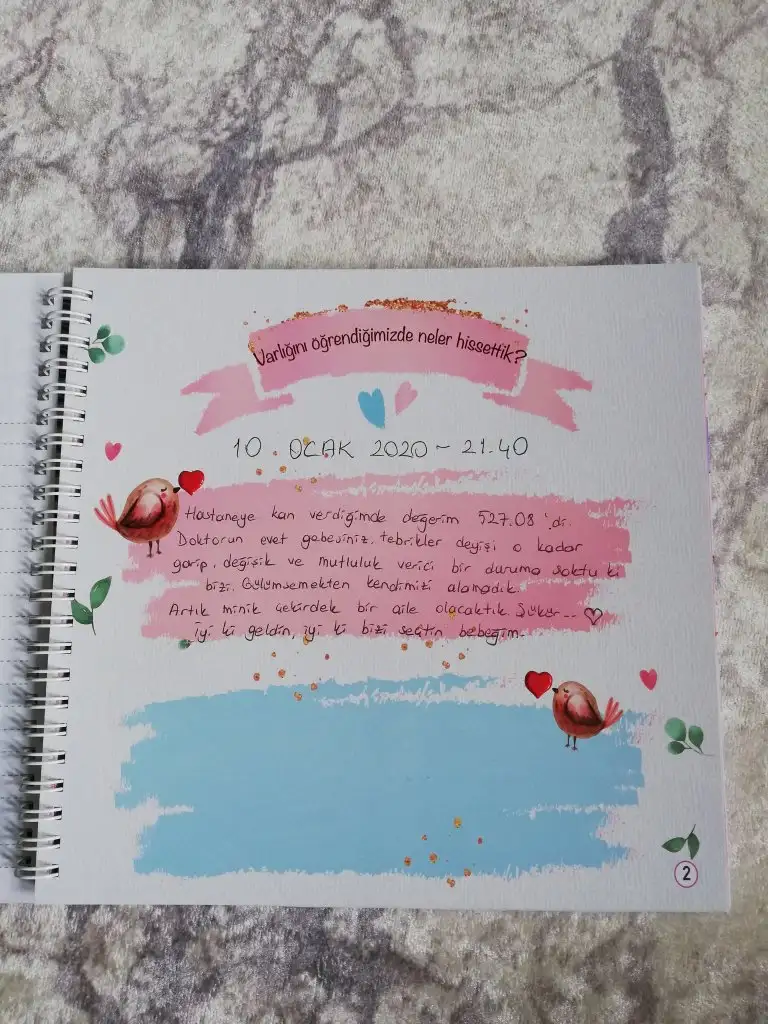 Varlığını öğrendiğimizde neler hissettik?
10. OCAK 2020 - 21.40
Hastaneye kan verdiğimde değerim 527.08 'di.
Doktorun evet gebesiniz, tebrikler deyişi o kadar
garip, değişik ve mutluluk verici bir duruma soktu ki
bizi. Gülümsemekten kendimizi alamadık.
Artık minik çekirdek bir aile olacaktık. Şükür... ♡
İyi ki geldin, iyi ki bizi seçtin bebeğim.
2